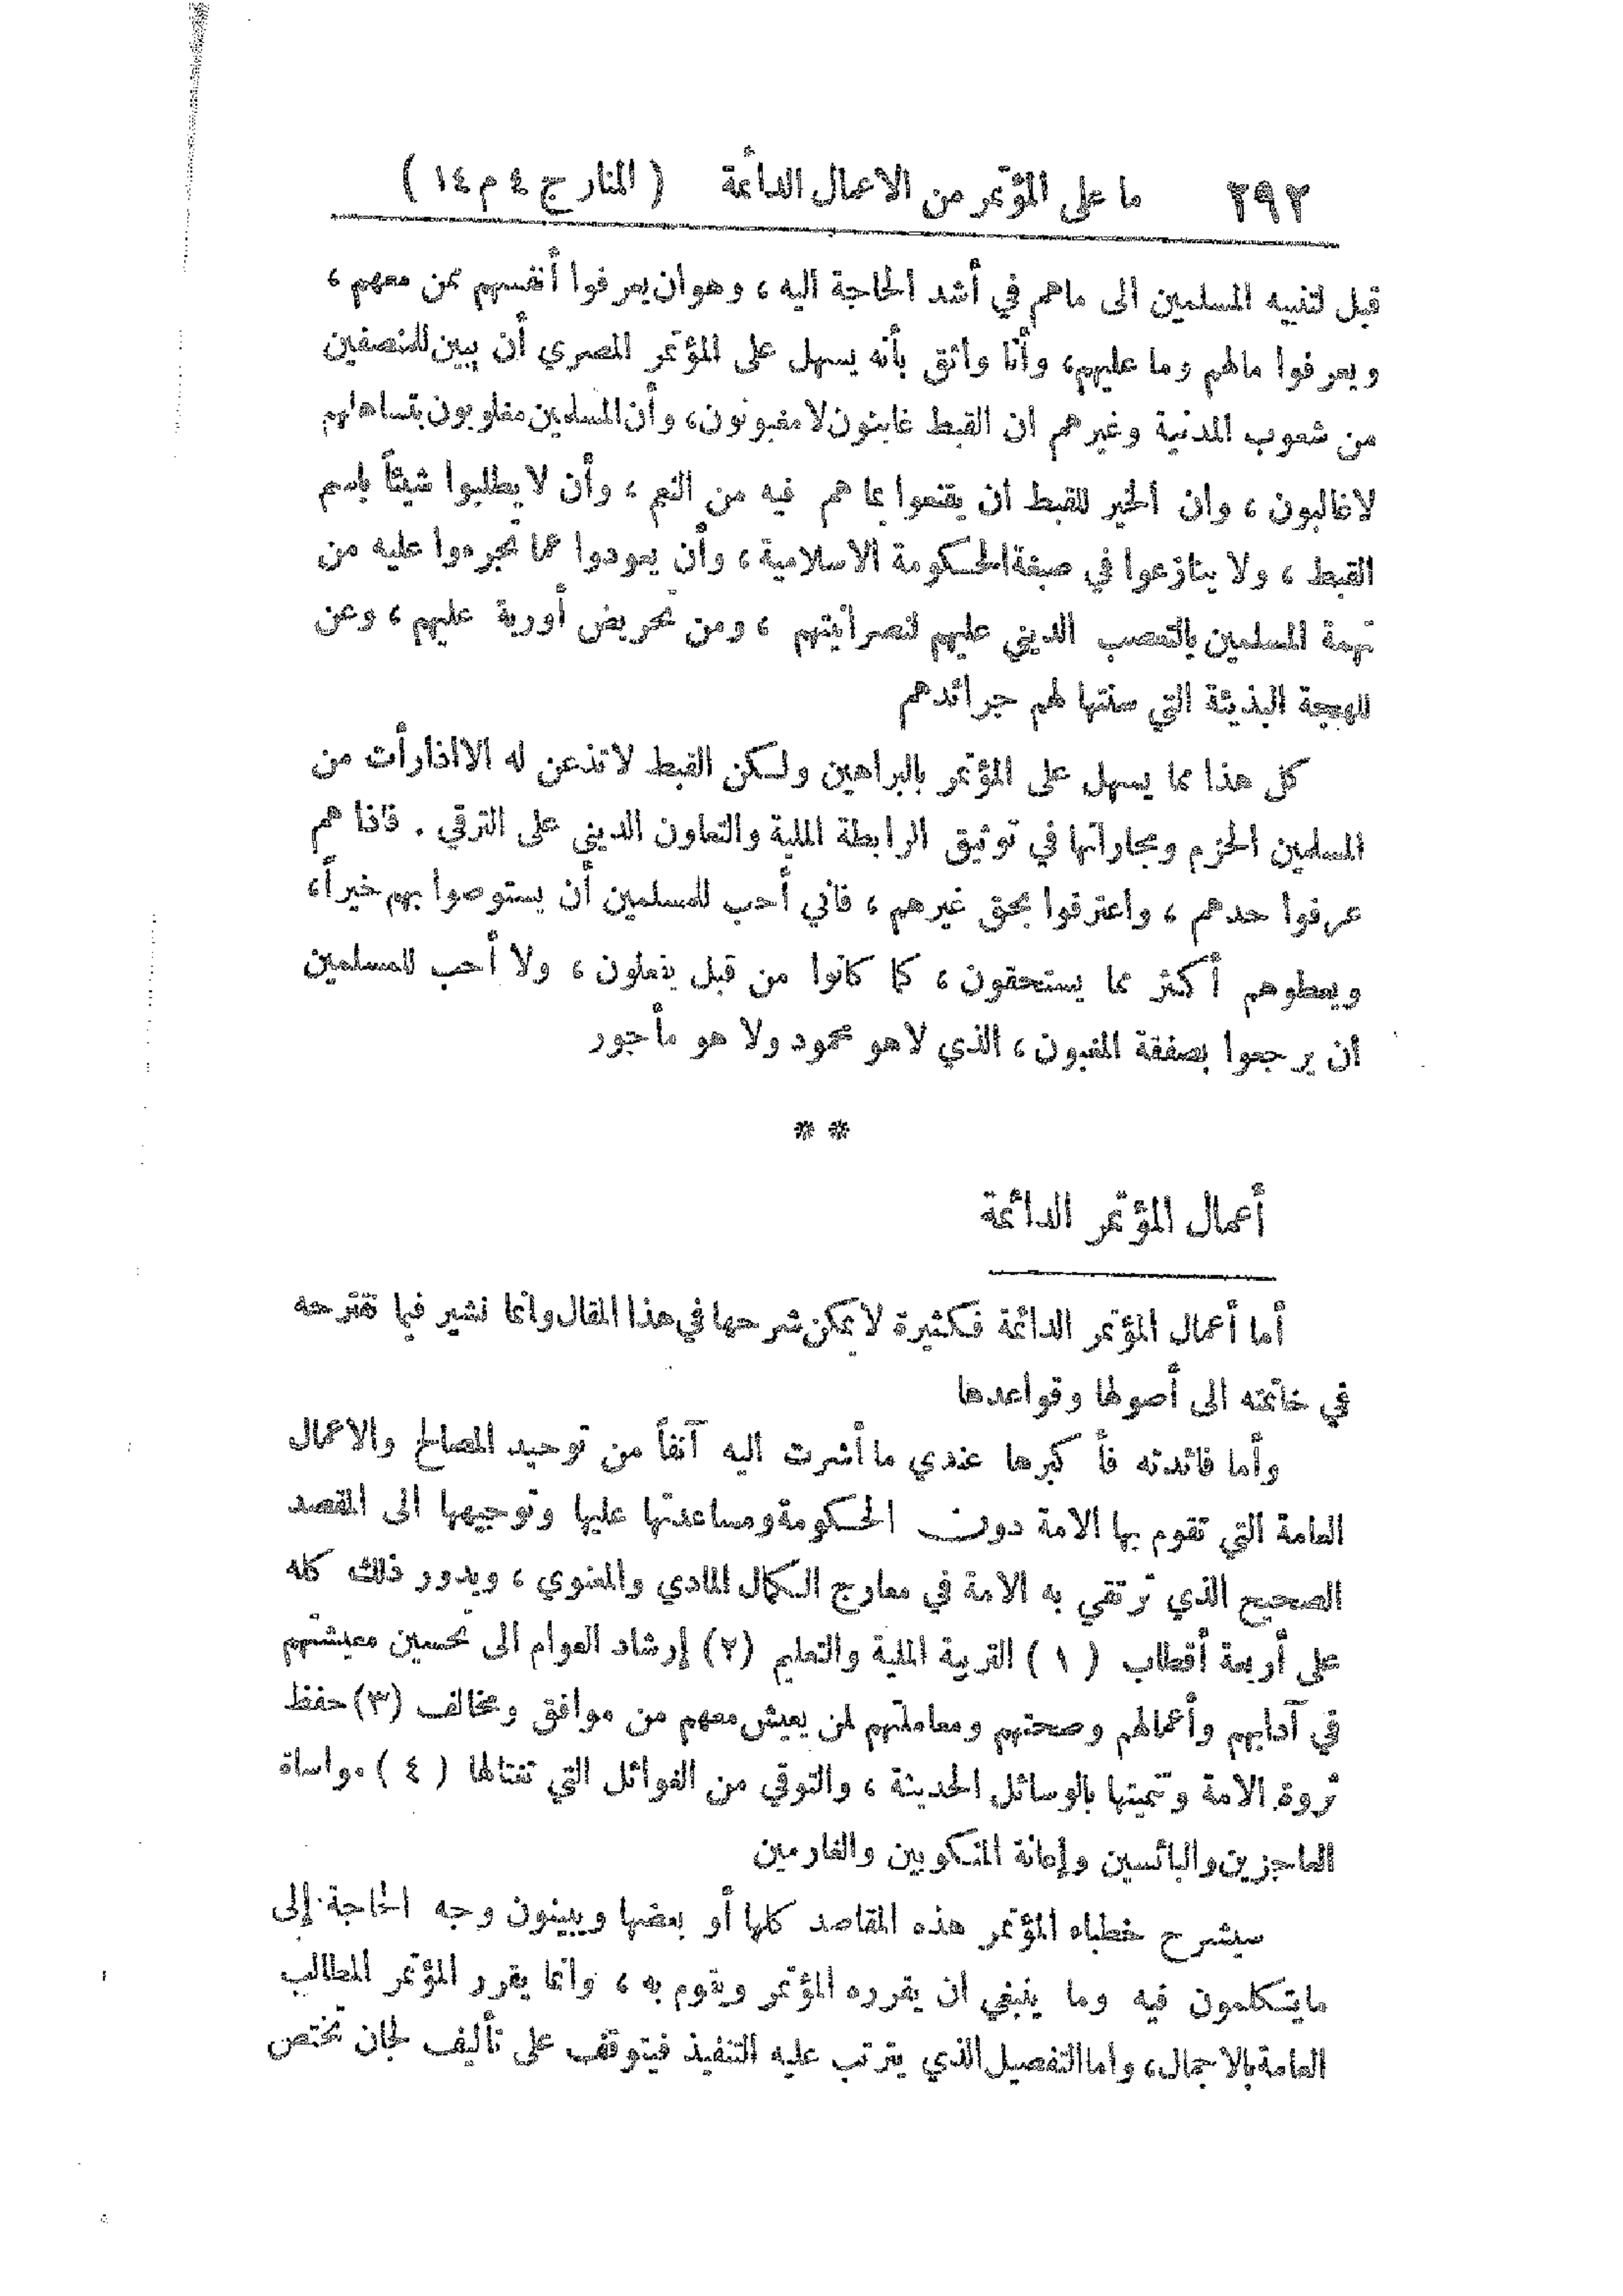 ٢٩٢ ما على المؤتمر من الاعمال الدائمة ( المنار ج ٤ م ١٤ )
قبل لتنبيه المسلمين الى ماهم في أشد الحاجة اليه ، وهوان يعرفوا أنفسهم بمن معهم ،
ويعرفوا مالهم وما عليهم، وأنا واثق بأنه يسهل على المؤتمر المصري أن يبين للمنصفين
من شعوب المدنية وغيرهم ان القبط غابنون لا مغبونون، وأن المسلمين مغلوبون بتساهلهم
لاغالبون ، وان الخير للقبط ان يقنعوا بما هم فيه من النعم ، وأن لا يطلبوا شيئاً باسم
القبط ، ولا ينازعوا في صبغة الحكومة الاسلامية ، وأن يعودوا عما تجرءوا عليه من
تهمة المسلمين بالتعصب الديني عليهم لنصرانيتهم ، ومن تحريض أوربة عليهم ، وعن
اللهجة البذيئة التي سنتها لهم جرائدهم
كل هذا مما يسهل على المؤتمر بالبراهين ولكن القبط لاتذعن له الااذارأت من
المسلمين الحزم ومجاراتها في توثيق الرابطة الملية والتعاون الديني على الترقي . فاذا هم
عرفوا حدهم ، واعترفوا بحق غيرهم ، فاني أحب للمسلمين أن يستوصوا بهم خيراً،
ويعطوهم أكثر مما يستحقون ، كما كانوا من قبل يفعلون ، ولا أحب للمسلمين
ان يرجعوا بصفقة المغبون ، الذي لاهو محمود ولا هو مأجور
* *
أعمال المؤتمر الدائمة
أما أعمال المؤتمر الدائمة فكثيرة لا يمكن شرحها في هذا المقال وانما نشير فيما نقترحه
في خاتمته الى أصولها وقواعدها
وأما فائدته فأ كبرها عندي ماأشرت اليه آنفاً من توحيد المصالح والاعمال
العامة التي تقوم بها الامة دون الحكومة ومساعدتها عليها وتوجيهها الى المقصد
الصحيح الذي ترتقي به الامة في معارج الكمال المادي والمعنوي ، ويدور ذلك كله
على أربعة أقطاب ( ١ ) التربية الملية والتعليم (٢) إرشاد العوام الى تحسين معيشتهم
في آدابهم وأعمالهم وصحتهم ومعاملتهم لمن يعيش معهم من موافق ومخالف (٣) حفظ
ثروة الامة وتنميتها بالوسائل الحديثة ، والتوقي من الغوائل التي تغتالها ( ٤ ) مواساة
العاجزين والبائسين وإعانة المنكوبين والغارمين
سيشرح خطباء المؤتمر هذه المقاصد كلها أو بعضها ويبينون وجه الحاجة إلى
مايتكلمون فيه وما ينبغي ان يقرره المؤتمر ويقوم به ، وانما يقرر المؤتمر المطالب
العامة بالاجمال، واما التفصيل الذي يترتب عليه التنفيذ فيتوقف على تأليف لجان تختص